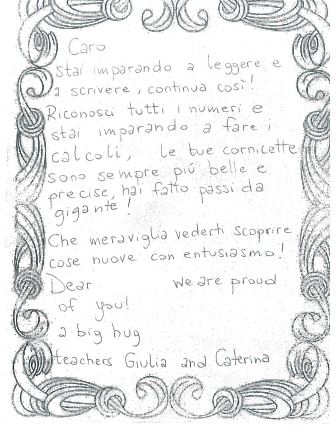 Caro
stai imparando a leggere e
a scrivere, continua così!
Riconosci tutti i numeri e
stai imparando a fare i
calcoli, le tue cornicette
sono sempre più belle e
precise, hai fatto passi da
gigante!
Che meraviglia vederti scoprire
cose nuove con entusiasmo!
Dear we are proud
of you!
a big hug
teachers Giulia and Caterina